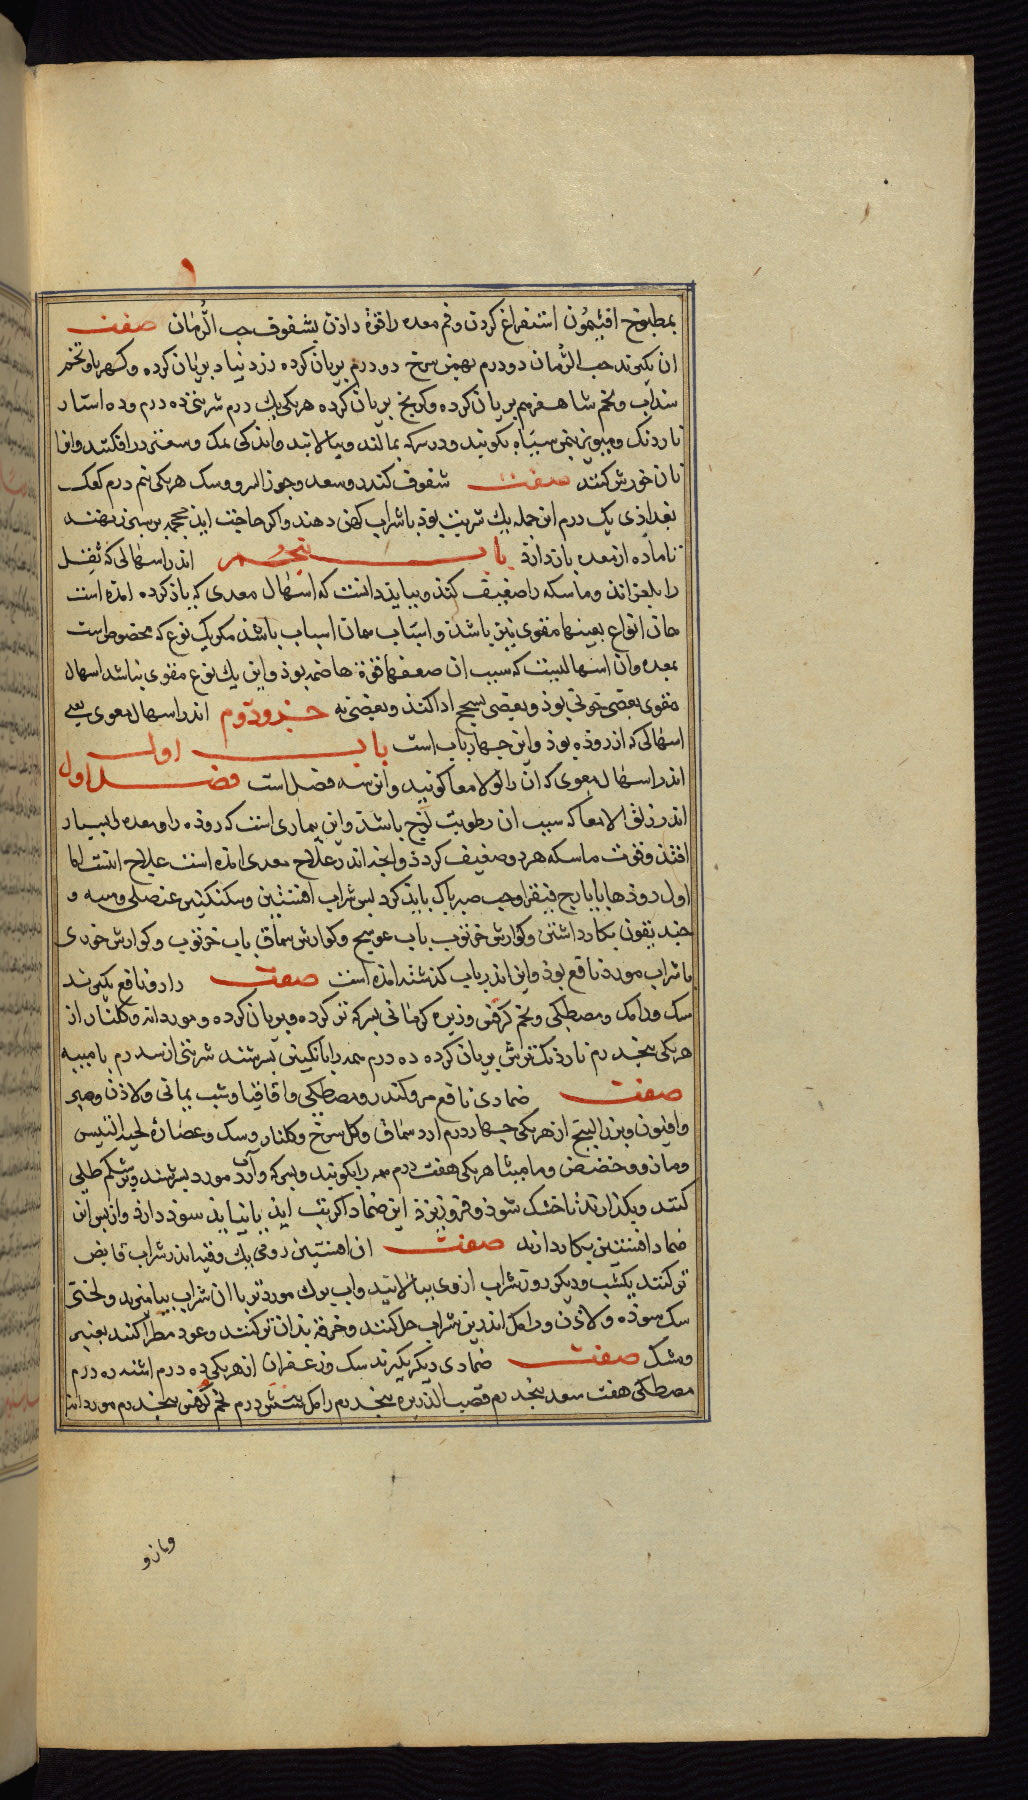 بمطبوخ افتیمون استفراغ کردن و فم معده را قوة دادن بسفوف حب الرمان صفت
ان بکیرند حب الرمان دو درم بهمن سرخ دو درم بریان کرده زرنباد بریان کرده و کهربا و تخم
سداب و تخم شاهسفرم بریان کرده و کریخ بریان کرده هریکی یك درم شربتی ده درم و ده استار
ناردنک و مویز بنمی سیاه بکوبند و در سرکه بمالند و بپالایند و اندکی نمک و سعتر در افکنند و انرا
نان خورش کنند صفت سفوف کندر و سعد و جوز السرو و سک هریکی نیم درم کعک
بغدادی یک درم این جمله یك شربت بود با شراب کهن دهند و اکر حاجت اید محجمه بر سبرز نهند
تا ماده از معده باز دارد باب پنجم اندر اسهالی که ثفل
را بلغزاند و ماسکه را ضعیف کند و بباید دانست که اسهال معدی که یاد کرده امده است
همان انواع بعینها معوی نیز باشد و اسباب همان اسباب باشد مکر یک نوع که مخصوص است
بمعده و ان اسهالیست که سبب ان ضعف قوة هاضمه بود و این یك نوع معوی نباشد اسهال
معوی بعضی خونی بود و بعضی بسحج ادا کند و بعضی نه جزو دوم اندر اسهال معوی یعنی
اسهالی که از روده بود و این چهار باب است باب اول
اندر اسهال معوی که ان را زلق الامعا کویند و این سه فصل است فصل اول
اندر زلق الامعا که سبب ان رطوبت لزج باشد و این بیماری است که روده را و معده را بسیار
افتد و قوت ماسکه هر دو ضعیف کردد و انچه اندر علاج معدی امده است علاج انست اما
اول روده ها بایارج فیقرا و حب صبر پاک باید کرد پس شراب افسنتین و سکنکبین عنصلی و میبه و
خندیقون بکار داشتن و کوارش خرنوب باب عوسج و کوارش سماق باب خرنوب و کوارش خوزی
با شراب مورد نافع بود و این اندر باب کذشته امده است صفت دارو نافع بکیرند
سک و رامک و مصطکی و تخم کرفس و زیره کرمانی بسرکه تر کرده و بریان کرده و مورد دانه و کلنار از
هریکی پنجدرم ناردنک ترش بریان کرده ده درم همه را بانکبین بسرشند شربتی از سه درم با میبه
صفت ضمادی نافع مر و کندر و مصطکی و اقاقیا و شب یمانی و لاذن و صبر
و افیون و بزر البنج از هریکی چهار درم ارد سماق و کل سرخ و کلنار و سک و عصاره لحیة التیس
و مازو و حضض و مامیثا هریکی هفت درم همه را بکوبند و بسرکه و آب مورد بسرشند و بر شکم طلی
کنند و بکذارند تا خشک شود و فرو ریزد این ضماد اکر تب اید یا نیاید سود دارد و از پس این
ضماد افسنتین بکار دارند صفت ان افسنتین رومی یك وقیه اندر شراب قابض
تر کنند یکشب و دیکر روز شراب از وی بپالایند و اب برك مورد تر با ان شراب بیامیزند و لختی
سک سوده و لاذن و رامک اندرین شراب حل کنند و خرقه بدان تر کنند و بعود مطرا کنند بعنبر
و مشک صفت ضمادی دیکر بکیرند سک و زعفران از هریکی ده درم اشنه ده درم
مصطکی هفت سعد پنجدرم قصب الذریره پنجدرم رامک شش درم تخم کرفس پنجدرم مورد دانه
و مازو